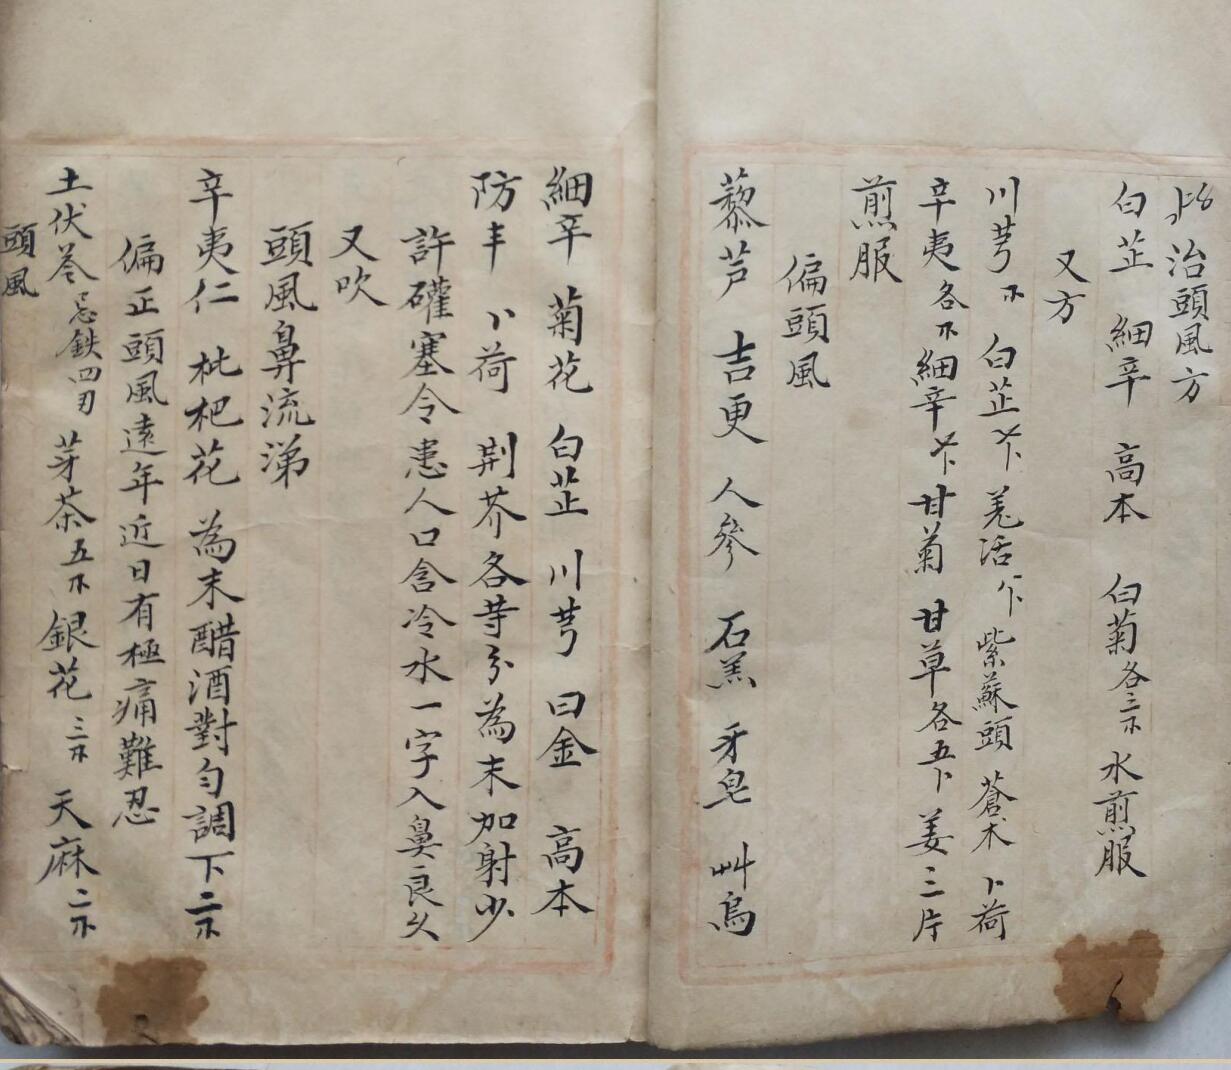 此治頭風方
白芷 細辛 高本 白菊各三 水煎服
又方
川芎 白芷 羌活 紫蘇頭 蒼术 卜荷
辛夷各 細辛 甘菊 甘草各五卜 姜三片
煎服
偏頭風
藜芦 吉更 人參 石羔 牙皂 艸烏
細辛 菊花 白芷 川芎 曰金 高本
防丰 卜荷 荆芥各等分為末加射少
許礶塞令患人口含冷水一字入鼻良久
又吹
頭風鼻流涕
辛夷仁 枇杷花 為末醋酒對勻調下二
偏正頭風遠年近日有極痛難忍
土伏苓忌鉄四 芽茶五 銀花三 天麻二
頭風